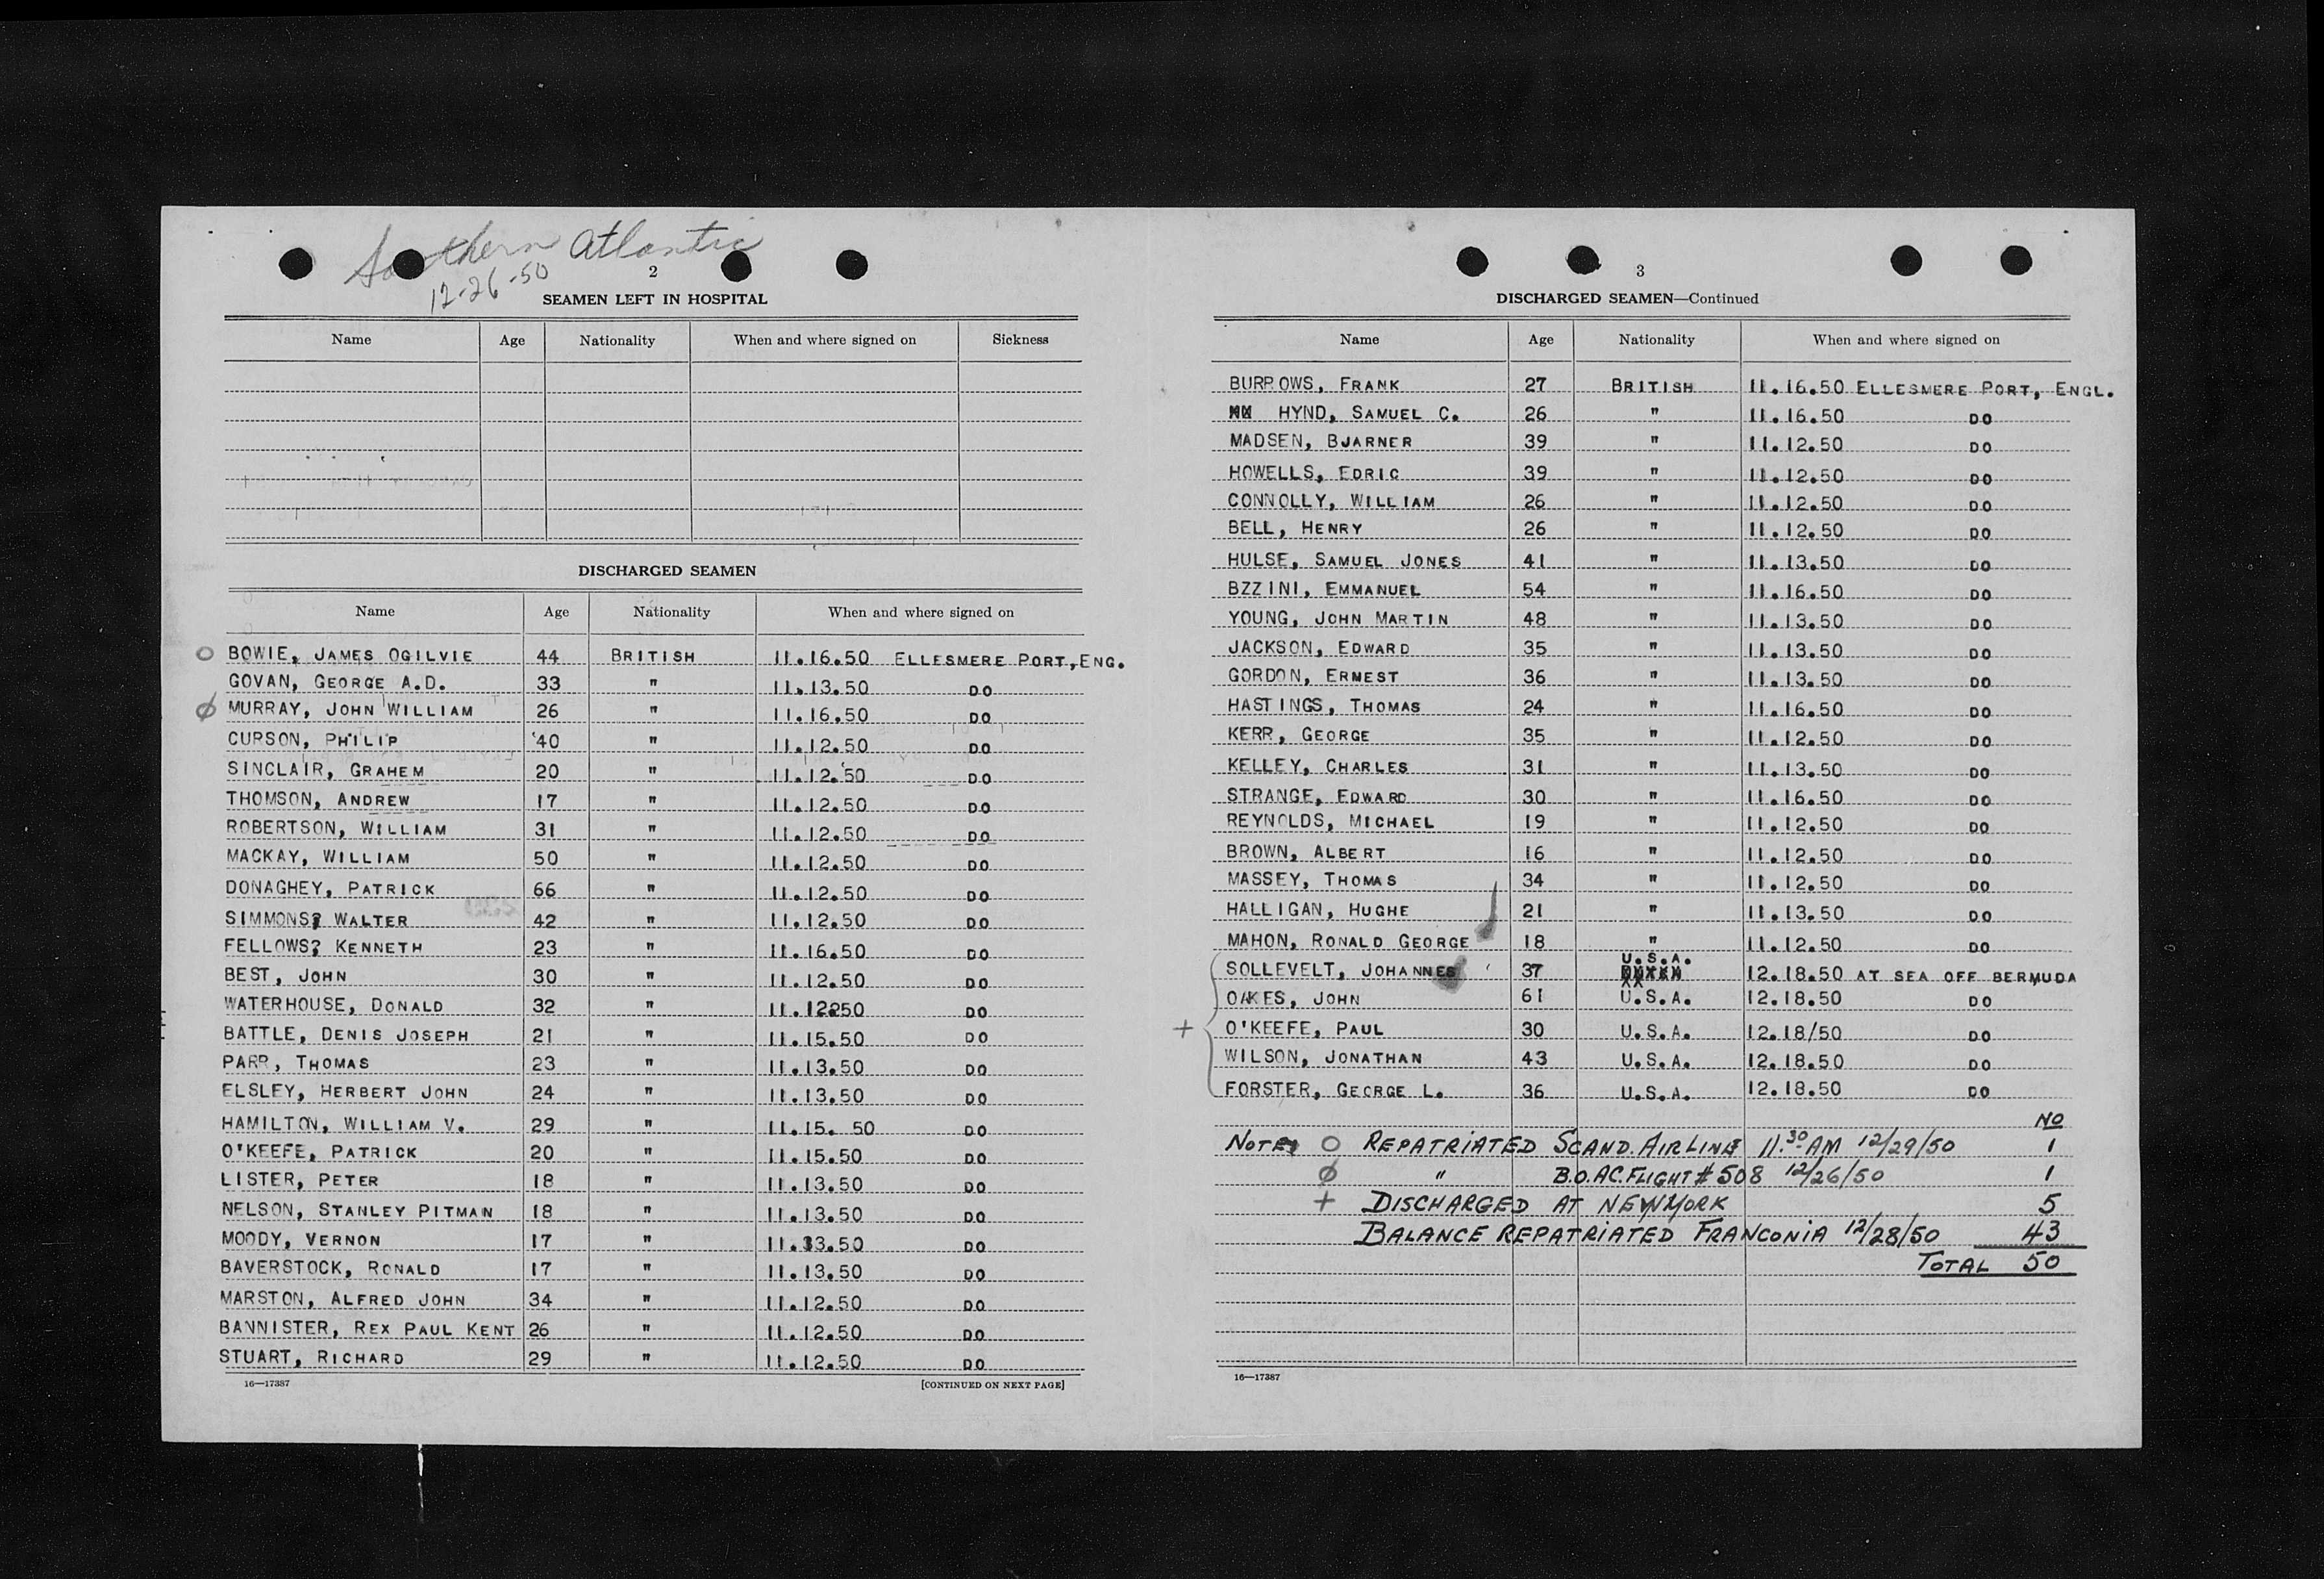 Southern Atlantic
12-26-50
2
SEAMEN LEFT IN HOSPITAL
Name Age Nationality When and where signed on Sickness
DISCHARGED SEAMEN
Name Age Nationality When and where signed on
O BOWIE, JAMES OGILVIE 44 BRITISH 11.16.50 ELLESMERE PORT, ENG.
GOVAN, GEORGE A.D. 33 " 11.13.50 DO
φ MURRAY, JOHN WILLIAM 26 " 11.16.50 DO
CURSON, PHILIP 40 " 11.12.50 DO
SINCLAIR, GRAHEM 20 " 11.12.50 DO
THOMSON, ANDREW 17 " 11.12.50 DO
ROBERTSON, WILLIAM 31 " 11.12.50 DO
MACKAY, WILLIAM 50 " 11.12.50 DO
DONAGHEY, PATRICK 66 " 11.12.50 DO
SIMMONS? WALTER 42 " 11.12.50 DO
FELLOWS? KENNETH 23 " 11.16.50 DO
BEST, JOHN 30 " 11.12.50 DO
WATERHOUSE, DONALD 32 " 11.12250 DO
BATTLE, DENIS JOSEPH 21 " 11.15.50 DO
PARR, THOMAS 23 " 11.13.50 DO
ELSLEY, HERBERT JOHN 24 " 11.13.50 DO
HAMILTON, WILLIAM V. 29 " 11.15. 50 DO
O'KEEFE, PATRICK 20 " 11.15.50 DO
LISTER, PETER 18 " 11.13.50 DO
NELSON, STANLEY PITMAN 18 " 11.13.50 DO
MOODY, VERNON 17 " 11.33.50 DO
BAVERSTOCK, RONALD 17 " 11.13.50 DO
MARSTON, ALFRED JOHN 34 " 11.12.50 DO
BANNISTER, REX PAUL KENT 26 " 11.12.50 DO
STUART, RICHARD 29 " 11.12.50 DO
16—17387 [CONTINUED ON NEXT PAGE]
3
DISCHARGED SEAMEN—Continued
Name Age Nationality When and where signed on
BURROWS, FRANK 27 BRITISH 11.16.50 ELLESMERE PORT, ENGL.
HYND, SAMUEL C. 26 " 11.16.50 DO
MADSEN, BJARNER 39 " 11.12.50 DO
HOWELLS, EDRIC 39 " 11.12.50 DO
CONNOLLY, WILLIAM 26 " 11.12.50 DO
BELL, HENRY 26 " 11.12.50 DO
HULSE, SAMUEL JONES 41 " 11.13.50 DO
BZZINI, EMMANUEL 54 " 11.16.50 DO
YOUNG, JOHN MARTIN 48 " 11.13.50 DO
JACKSON, EDWARD 35 " 11.13.50 DO
GORDON, ERMEST 36 " 11.13.50 DO
HASTINGS, THOMAS 24 " 11.16.50 DO
KERR, GEORGE 35 " 11.12.50 DO
KELLEY, CHARLES 31 " 11.13.50 DO
STRANGE, EDWARD 30 " 11.16.50 DO
REYNOLDS, MICHAEL 19 " 11.12.50 DO
BROWN, ALBERT 16 " 11.12.50 DO
MASSEY, THOMAS 34 " 11.12.50 DO
HALLIGAN, HUGHE 21 " 11.13.50 DO
MAHON, RONALD GEORGE 18 " 11.12.50 DO
SOLLEVELT, JOHANNES 37 U.S.A. 12.18.50 AT SEA OFF BERMUDA
OAKES, JOHN 61 U.S.A. 12.18.50 DO
+ O'KEEFE, PAUL 30 U.S.A. 12.18/50 DO
WILSON, JONATHAN 43 U.S.A. 12.18.50 DO
FORSTER, GEORGE L. 36 U.S.A. 12.18.50 DO
NO
NOTE, O REPATRIATED SCAND. AIRLINE 11.30 AM 12/29/50 1
φ " B.O.AC. FLIGHT # 508 12/26/50 1
+ DISCHARGED AT NEW YORK 5
BALANCE REPATRIATED FRANCONIA 12/28/50 43
TOTAL 50
16—17387